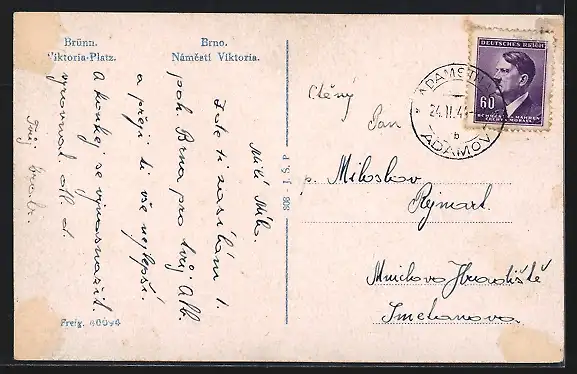 Brünn.
Viktoria-Platz.
Brno.
Náměstí Viktoria.
Milý Mila.
Zde ti zasílám 1.
poh. Brna pro tvůj Alb
a přeji ti vše nejlepší.
A koukej se vynasnažit
vyrovnat alb
Tvůj bratr.
Freig. 40094
P S. I. 808
DEUTSCHES REICH
60
BÖHMEN U. MÄHREN
ČECHY A MORAVA
ADAMSTHAL
24.II.4
b
ADAMOV
Ctěný
Pan
p. Miloslav
Rejmart.
Mnichovo Hradiště
Smetanova